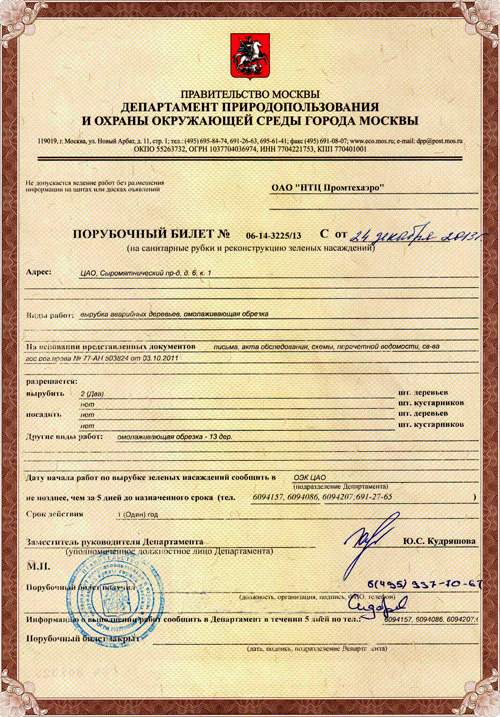 ПРАВИТЕЛЬСТВО МОСКВЫ
ДЕПАРТАМЕНТ ПРИРОДОПОЛЬЗОВАНИЯ
И ОХРАНЫ ОКРУЖАЮЩЕЙ СРЕДЫ ГОРОДА МОСКВЫ
119019, г. Москва, ул. Новый Арбат, д. 11, стр. 1; тел.: (495) 695-84-74, 691-26-63, 695-61-41; факс (495) 691-08-07; www.eco.mos.ru; e-mail: dpp@post.mos.ru
ОКПО 55263732, ОГРН 1037704036974, ИНН 7704221753, КПП 770401001
Не допускается ведение работ без размещения
информации на щитах или досках объявлений
ОАО "НТЦ Промтехаэро"
ПОРУБОЧНЫЙ БИЛЕТ № 06-14-3225/13 С от 24 декабря 2013г
(на санитарные рубки и реконструкцию зеленых насаждений)
Адрес: ЦАО, Сыромятнический пр-д, д. 6, к. 1
Виды работ: вырубка аварийных деревьев, омолаживающая обрезка
На основании представленных документов письма, акта обследования, схемы, перечетной ведомости, св-ва
гос рег.права № 77-АН 503824 от 03.10.2011
разрешается:
вырубить 2 (Два) шт. деревьев
нет шт. кустарников
посадить нет шт. деревьев
нет шт. кустарников
Другие виды работ: омолаживающая обрезка - 13 дер.
Дату начала работ по вырубке зеленых насаждений сообщить в ОЭК ЦАО
(подразделение Департамента)
не позднее, чем за 5 дней до назначенного срока (тел. 6094157, 6094086, 6094207,691-27-65 )
Срок действия 1 (Один) год
Заместитель руководителя Департамента Ю.С. Кудряшова
(уполномоченное должностное лицо Департамента)
М.П.
Порубочный билет получил 8(495) 937-70-67
(должность, организация, подпись, ФИО, телефон)
Информацию о выполнении работ сообщить в Департамент в течении 5 дней по тел.: 6094157, 6094086, 6094207,6
Порубочный билет закрыт
(дата, подпись, подразделение Департамента)